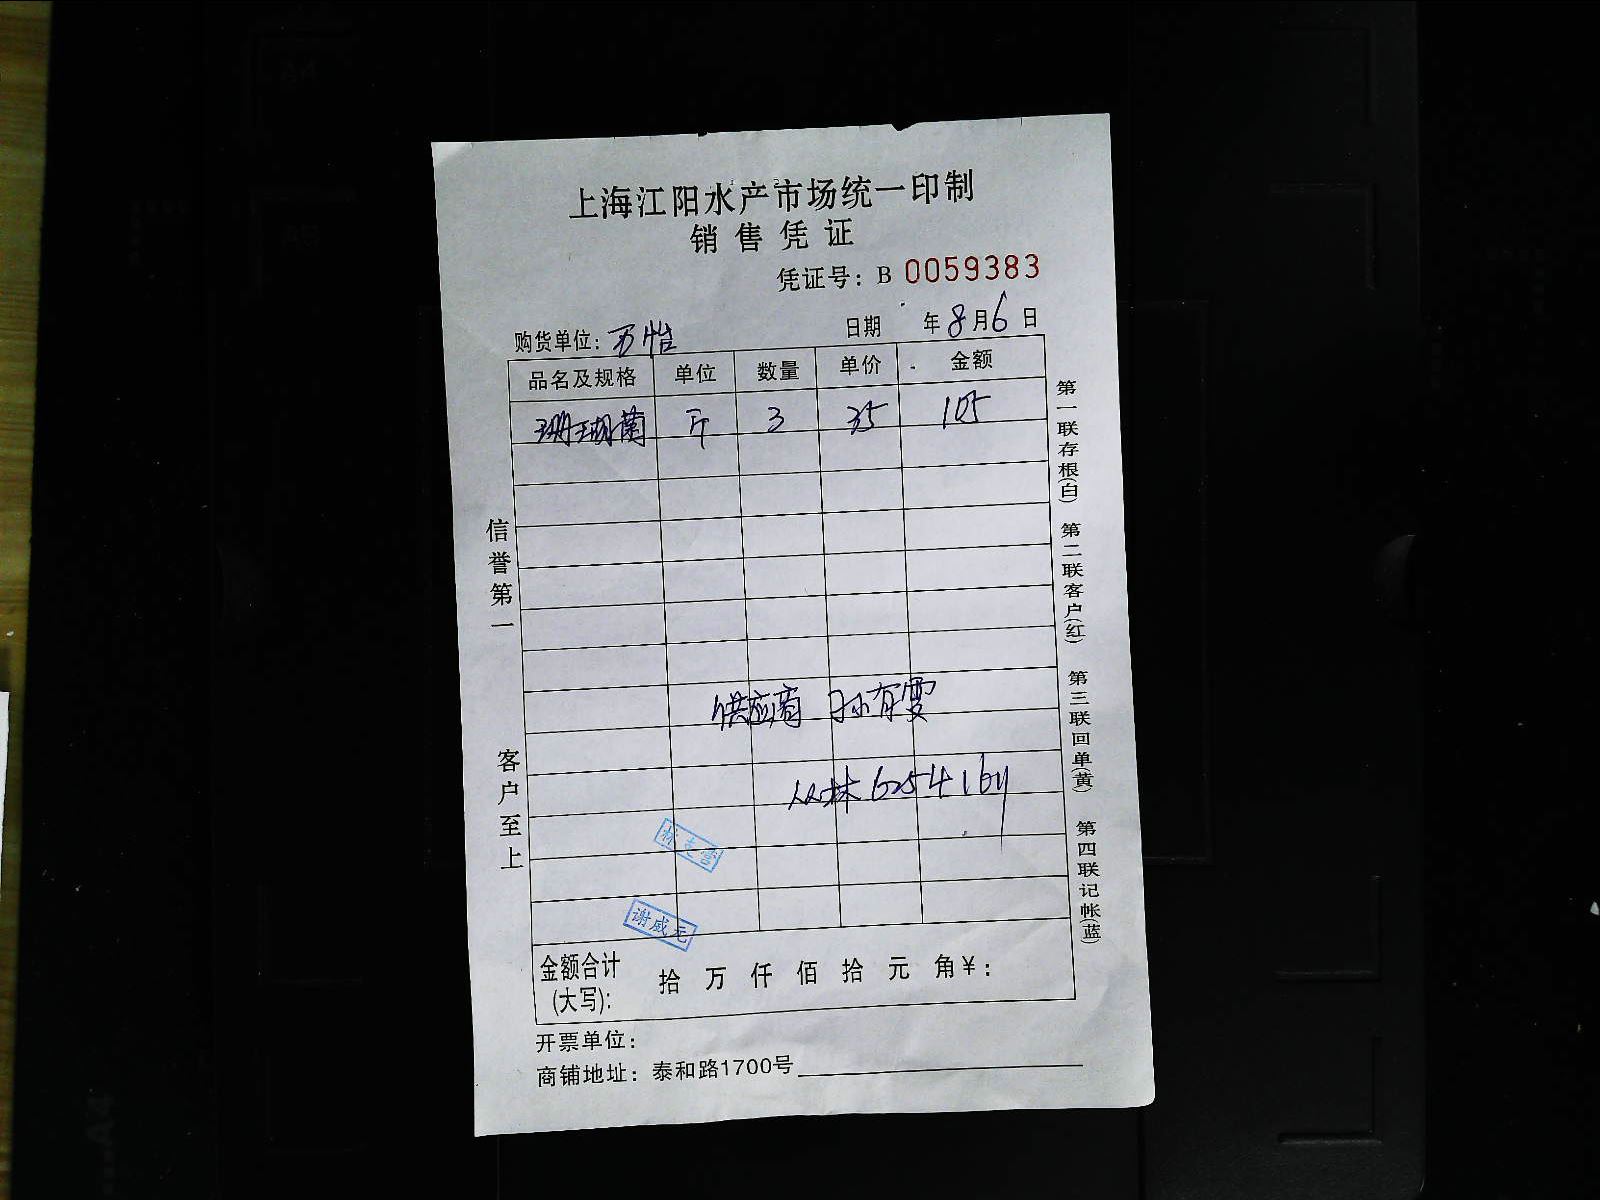 上海江阳水产市场统一印制
销售凭证
凭证号：B 0059383
购货单位：万怡 日期 年8月6日
品名及规格 单位 数量 单价 金额
珊瑚菌 斤 3 35 105
供应商 孙有雯
从林 6254164
谢威元
金额合计(大写)： 拾 万 仟 佰 拾 元 角 ¥：
开票单位：
商铺地址：泰和路1700号
信誉第一 客户至上
第一联存根(白) 第二联客户(红) 第三联回单(黄) 第四联记帐(蓝)